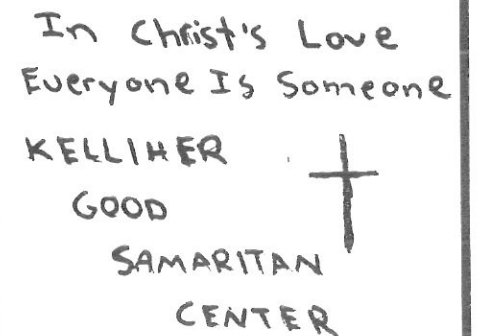 In Christ's Love
Everyone Is Someone
KELLIHER
GOOD
SAMARITAN
CENTER